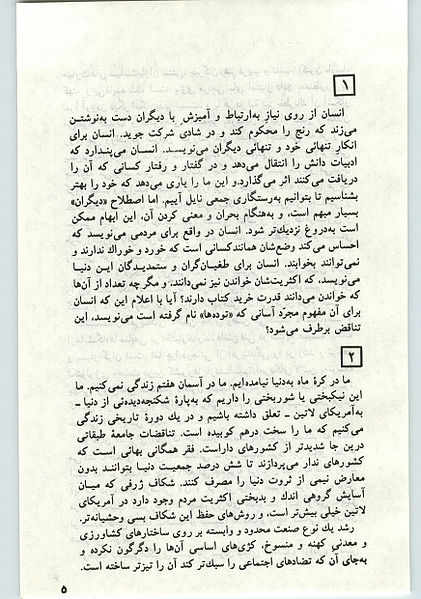 ۱
انسان از روی نیاز به‌ارتباط و آمیزش با دیگران دست به‌نوشتن
می‌زند که رنج را محکوم کند و در شادی شرکت جوید. انسان برای
انکار تنهائی خود و تنهائی دیگران می‌نویسد. انسان می‌پندارد که
ادبیات دانش را انتقال می‌دهد و در گفتار و رفتار کسانی که آن را
دریافت می‌کنند اثر می‌گذارد.و این ما را یاری می‌دهد که خود را بهتر
بشناسیم تا بتوانیم به‌رستگاری جمعی نایل آییم. اما اصطلاح «دیگران»
بسیار مبهم است، و به‌هنگام بحران و معنی کردن آن، این ابهام ممکن
است به‌دروغ نزدیك‌تر شود. انسان در واقع برای مردمی می‌نویسد که
احساس می‌کند وضع‌شان همانندکسانی است که خورد و خوراك ندارند و
نمی‌توانند بخوابند. انسان برای طغیان‌گران و ستمدیدگان این دنیا
می‌نویسد، که اکثریت‌شان خواندن نیز نمی‌دانند، و مگر چه تعداد از آن‌ها
که خواندن می‌دانند قدرت خرید کتاب دارند؟ آیا با اعلام این که انسان
برای آن مفهوم مجرّد آسانی که «توده‌ها» نام گرفته است می‌نویسد، این
تناقض برطرف می‌شود؟
۲
ما در کرهٔ ماه به‌دنیا نیامده‌ایم. ما در آسمان هفتم زندگی نمی‌کنیم. ما
این نیکبختی یا شوربختی را داریم که به‌پارهٔ شکنجه‌دیده‌ئی از دنیا ـ
به‌آمریکای لاتین ـ تعلق داشته باشیم و در یك دورهٔ تاریخی زندگی
می‌کنیم که ما را سخت درهم کوبیده است. تناقضات جامعهٔ طبقاتی
درین جا شدیدتر از کشورهای داراست. فقر همگانی بهائی است که
کشورهای ندار می‌پردازند تا شش درصد جمعیت دنیا بتوانند بدون
معارض نیمی از ثروت دنیا را مصرف کنند. شکاف ژرفی که میان
آسایش گروهی اندك و بدبختی اکثریت مردم وجود دارد در آمریکای
لاتین خیلی بیش‌تر است، و روش‌های حفظ این شکاف بسی وحشیانه‌تر.
رشد یك نوع صنعت محدود و وابسته بر روی ساختارهای کشاورزی
و معدنی کهنه و منسوخ، کژی‌های اساسی آن‌ها را دگرگون نکرده و
به‌جای آن که تضادهای اجتماعی را سبك‌تر کند آن را تیزتر ساخته است.
۵